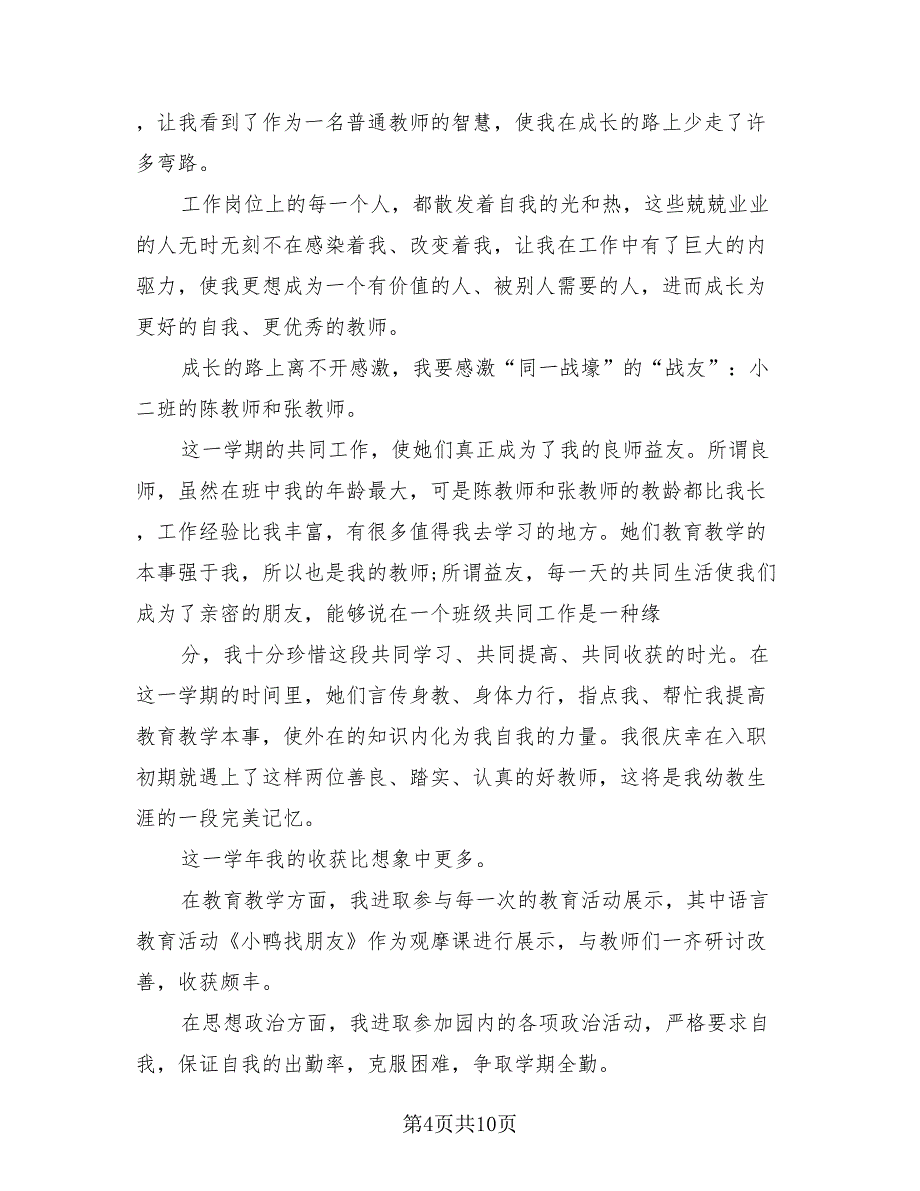 ，让我看到了作为一名普通教师的智慧，使我在成长的路上少走了许
多弯路。
工作岗位上的每一个人，都散发着自我的光和热，这些兢兢业业
的人无时无刻不在感染着我、改变着我，让我在工作中有了巨大的内
驱力，使我更想成为一个有价值的人、被别人需要的人，进而成长为
更好的自我、更优秀的教师。
成长的路上离不开感激，我要感激“同一战壕”的“战友”：小
二班的陈教师和张教师。
这一学期的共同工作，使她们真正成为了我的良师益友。所谓良
师，虽然在班中我的年龄最大，可是陈教师和张教师的教龄都比我长
，工作经验比我丰富，有很多值得我去学习的地方。她们教育教学的
本事强于我，所以也是我的教师;所谓益友，每一天的共同生活使我们
成为了亲密的朋友，能够说在一个班级共同工作是一种缘
分，我十分珍惜这段共同学习、共同提高、共同收获的时光。在
这一学期的时间里，她们言传身教、身体力行，指点我、帮忙我提高
教育教学本事，使外在的知识内化为我自我的力量。我很庆幸在入职
初期就遇上了这样两位善良、踏实、认真的好教师，这将是我幼教生
涯的一段完美记忆。
这一学年我的收获比想象中更多。
在教育教学方面，我进取参与每一次的教育活动展示，其中语言
教育活动《小鸭找朋友》作为观摩课进行展示，与教师们一齐研讨改
善，收获颇丰。
在思想政治方面，我进取参加园内的各项政治活动，严格要求自
我，保证自我的出勤率，克服困难，争取学期全勤。
第4页共10页